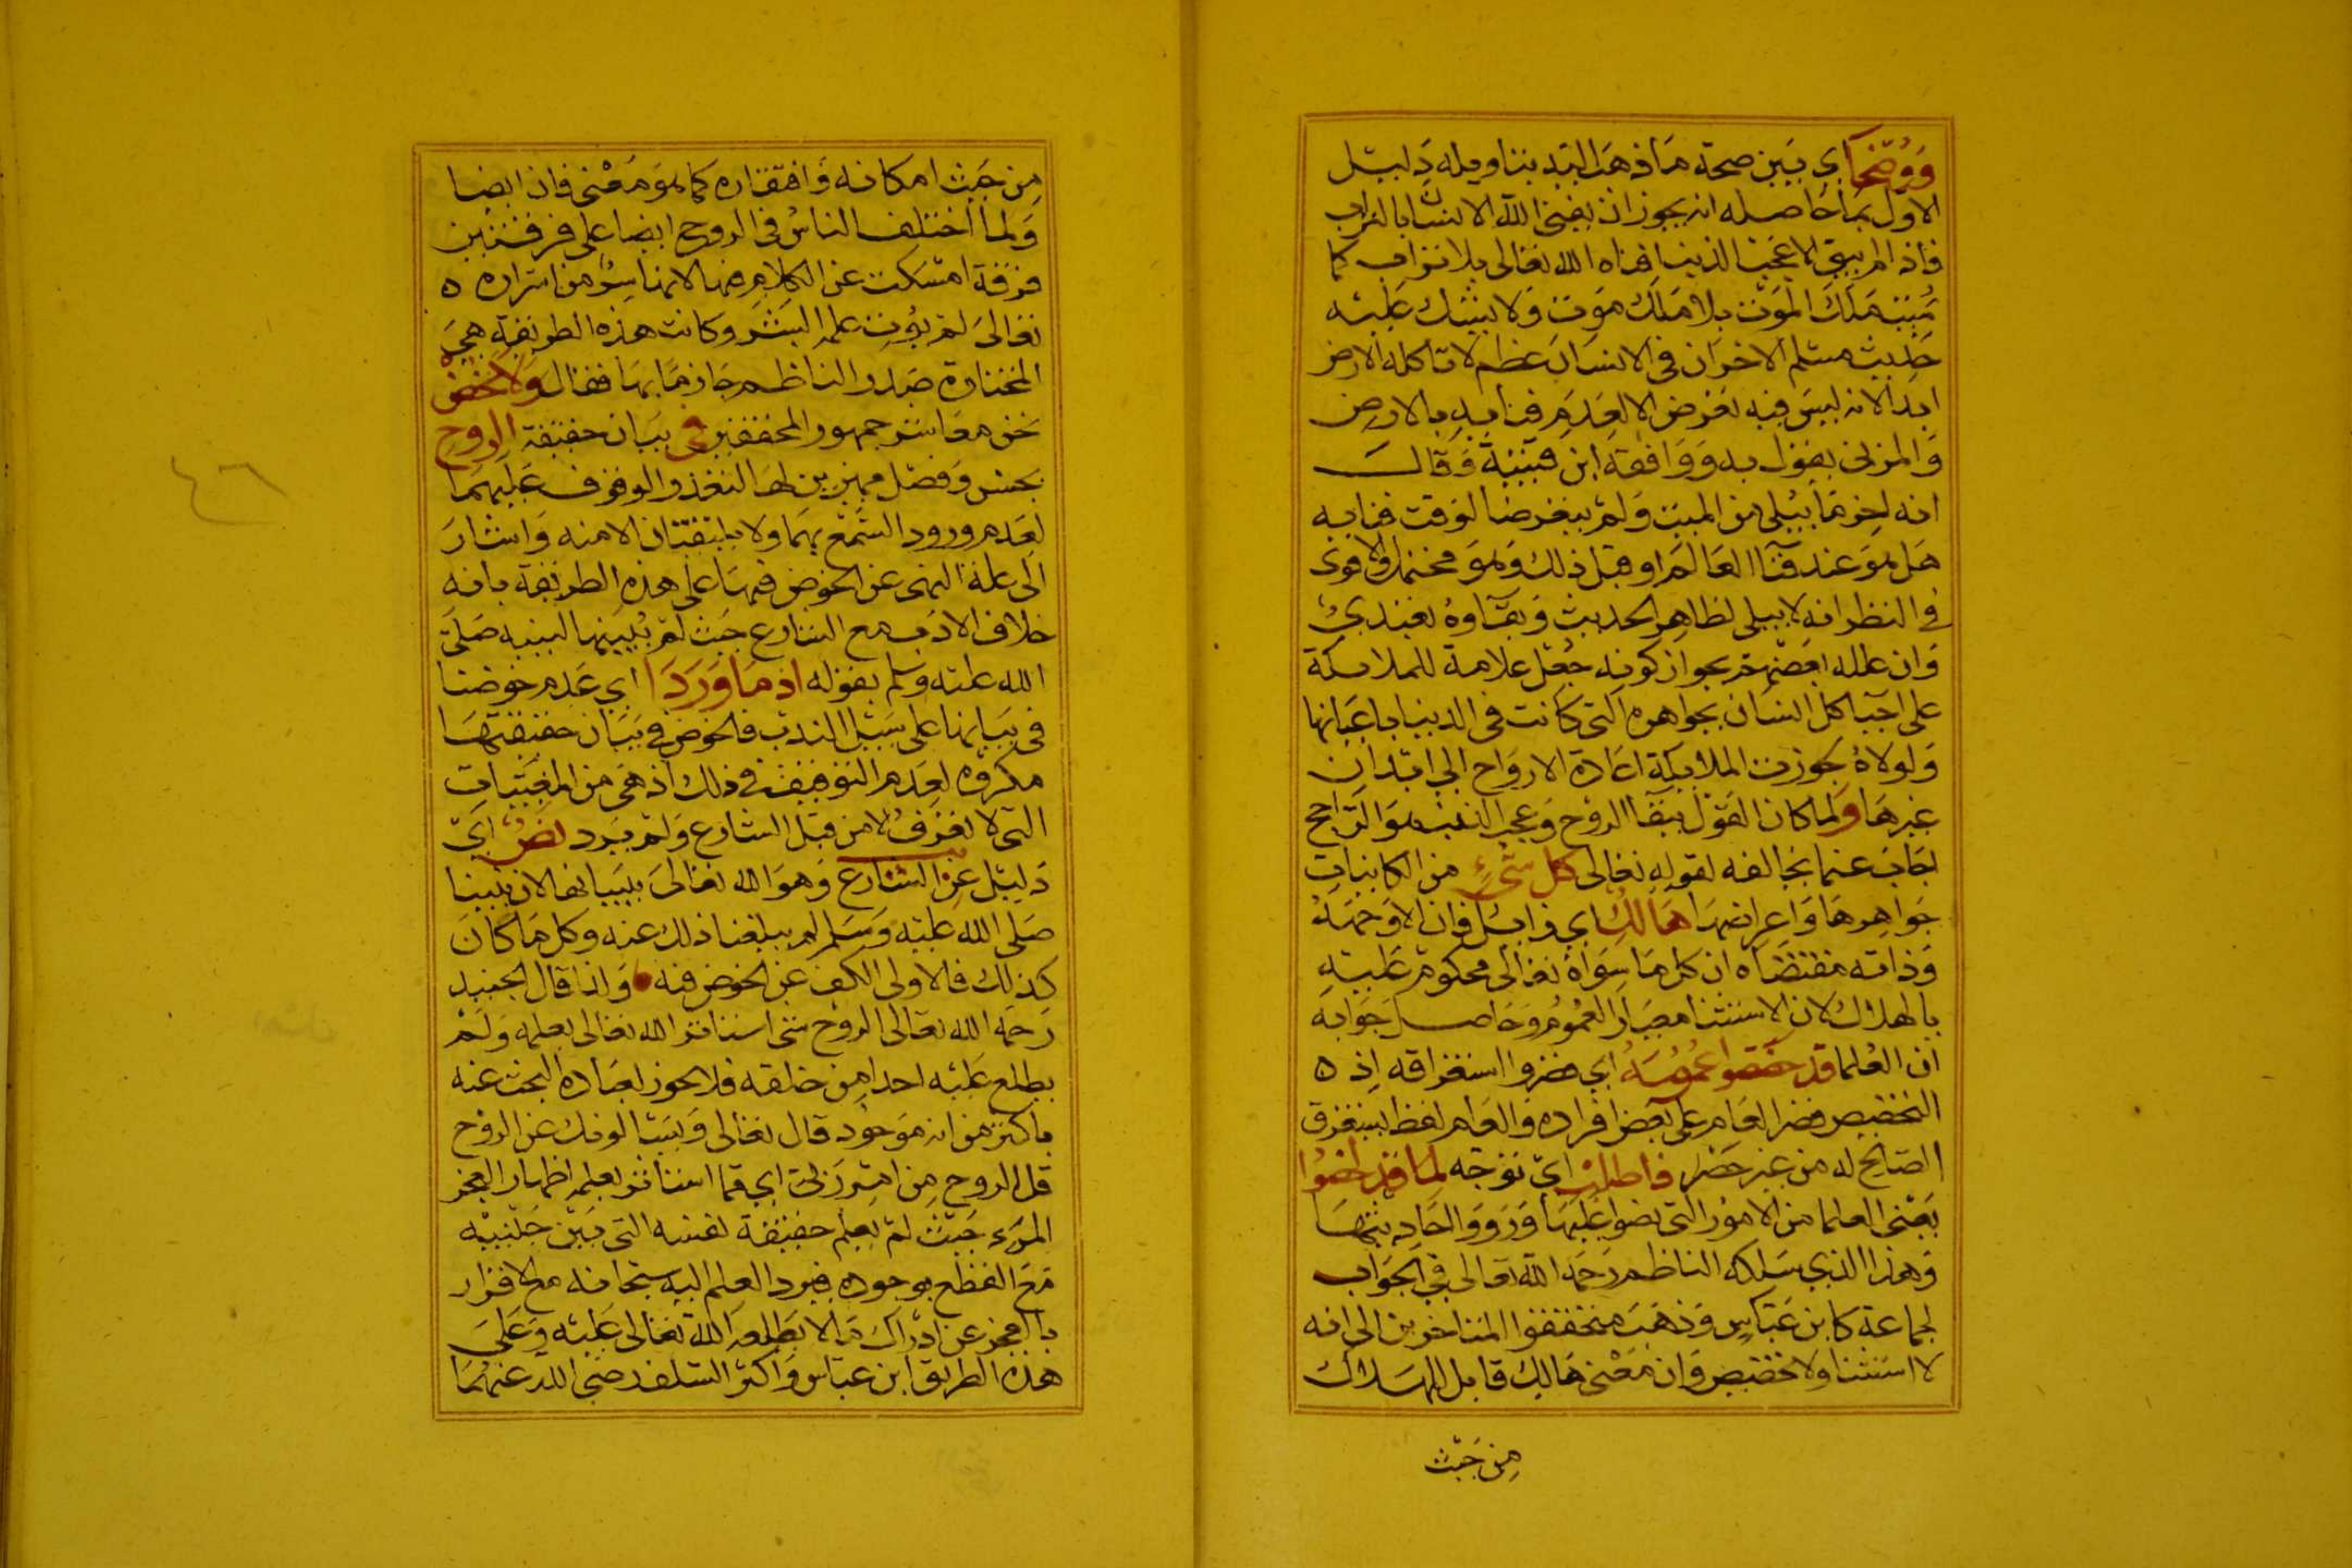 ووضحا اي بين صحة ما ذهب اليه بتاويله دليل
الاول بما حاصله انه يجوز ان يفني الله الانسان بالتراب
فاذا لم يبق الا عجب الذنب افناه الله تعالى بلا تراب كما
يميت ملك الموت بلا ملك موت ولا يشك عليه
حديث مسلم الاخر ان في الانسان عظم لا تاكله الارض
ابدا لانه ليس فيه تعرض الا لعدم فنايه بالارض
والمزني يقول به ووافقه ابن قتيبة وقال
انه اخر ما يبلى من الميت ولم يتعرضا لوقت فنايه
هل هو عند فنا العالم او قبل ذلك وهو محتمل والاقوى
في النظر انه لا يبلى لظاهر الحديث وبقاوه تعبدي
وان علله بعضهم بجواز كونه جعل علامة للملايكة
على احيا كل انسان بجواهره التي كانت في الدنيا باعيانها
ولولاه لجوزت الملايكة اعادة الارواح الى ابدان
غيرها ولما كان القول ببقا الروح وعجب الذنب هو الراجح
اجاب عنما يخالفه لقوله تعالى كل شيء من الكاينات
جواهرها واعراضها هالك اي زايل فان الا وجهه
وذاته مقتضاه ان كل ما سواه تعالى محكوم عليه
بالهلاك لان الاستثنا معيار العموم وحاصل جوابه
ان العلما قد خصصوا عمومه اي قصروا استغراقه اذ ه
التخصيص قصر العام على بعض افراده والعام لفظ يستغرق
الصالح له من غير حصر فاطلب اي توجه لما قد لخصوا
يعني العلما من الامور التي نصوا عليها ورووا احاديثها
وهذا الذي سلكه الناظم رحمه الله تعالى في الجواب
لجماعة كابن عباس وذهب محققوا المتاخرين الى انه
لا استثنا ولا تخصيص وان معنى هالك قابل للهلاك
من حيث
من حيث امكانه وافتقاره كما هو معنى فان ايضا
ولما اختلف الناس في الروح ايضا على فرقتين
فرقة امسكت عن الكلام فيها لانها سر من اسراره ه
تعالى لم يوت علمه البشر وكانت هذه الطريقة هي
المختارة صدر الناظم جازما بها فقال ولا نخض
نحن معاشر جمهور المحققين في بيان حقيقة الروح
بجنس وفصل مميزين لها لتعذر الوقوف عليهما
لعدم ورود السمع بهما ولا يتلقيان الا منه واشار
الى علة النهي عن الخوض فيها على هذه الطريقة بانه
خلاف الادب مع الشارع حيث لم يبينها لنبيه صلى
الله عليه وسلم بقوله اذ ما وردا اي عدم خوضنا
في بيانها على سبيل الندب فالخوض في بيان حقيقتها
مكروه لعدم التوقيف في ذلك اذ هي من المغيبات
التي لا تعرف الا من قبل الشارع ولم يرد نص اي
دليل عن الشارع وهو الله تعالى ببيانها لان نبينا
صلى الله عليه وسلم لم يبلغنا ذلك عنه وكل ما كان
كذلك فالاولى الكف عن الخوض فيه ولذا قال الجنيد
رحمه الله تعالى الروح شي استاثر الله تعالى بعلمه ولم
يطلع عليه احدا من خلقه فلا يجوز لعباده البحث عنه
باكثر من انه موجود قال تعالى ويسالونك عن الروح
قل الروح من امر ربي اي مما استاثر بعلمه اظهار العجز
المرء حيث لم يعلم حقيقة نفسه التي بين جنبيه
مع القطع بوجوده فيرد العلم اليه سبحانه مع الاقرار
بالعجز عن ادراك ما لا يطلعه الله تعالى عليه وعلى
هذه الطريق ابن عباس واكثر السلف رضي الله عنهما
٤٦